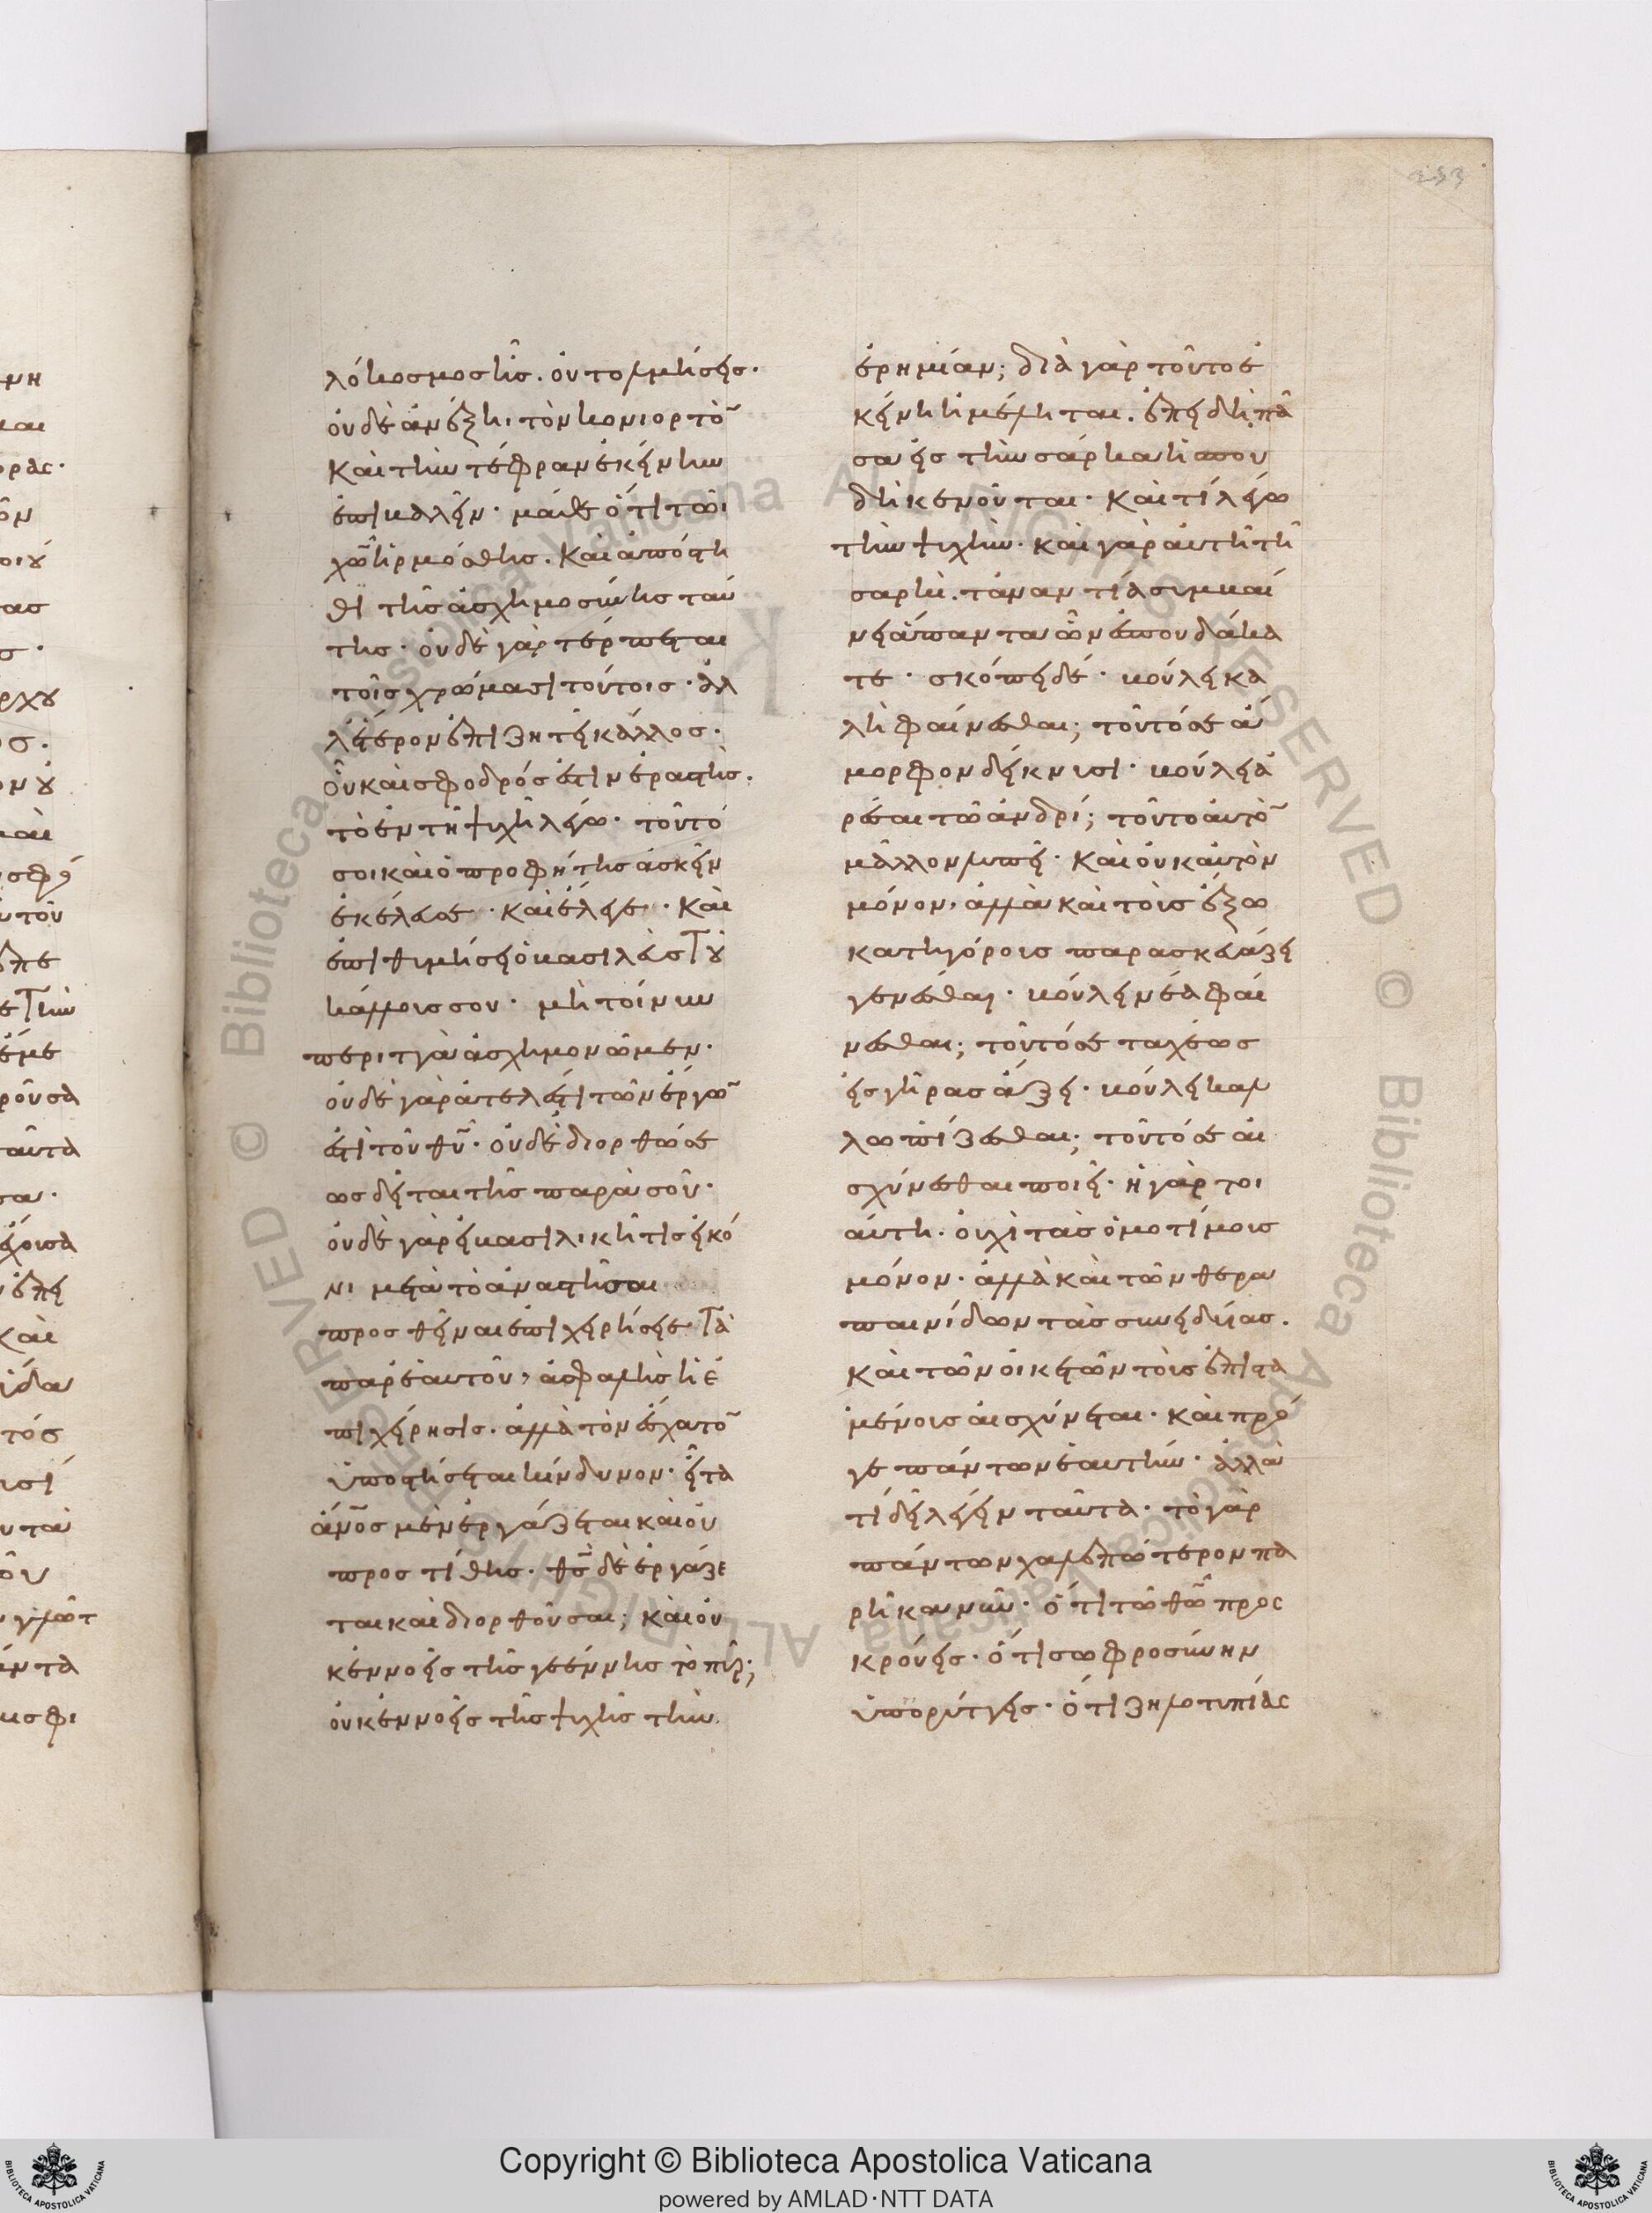 253
λόκοσμος ἧς. οὐ τολμήσεις.
οὐδὲ ἀνέξη, τὸν κονιορτὸ̄
καὶ τὴν τέφραν ἐκείνην
ἐπικαλεῖν· μάθε ὅτι τῶι
χῶ ἡρμόσθης. καὶ ἀπόστη
θι τῆς ἀσχημοσύνης ταύ
της· οὐδὲ γὰρ τέρπεται
τοῖς χρώμασι τούτοις· ἀλ
λ' ἕτερον ἐπιζητεῖ κάλλος.
οὗ καὶ σφοδρός ἐστιν ἐραστής.
τὸ ἐν τῆ ψυχῆ λέγω· τοῦτό
σοι καὶ ὁ προφήτης ἀσκεῖν
ἐκέλευσε· καὶ ἔλεγε· καὶ
ἐπιθυμήσει ὁ βασιλεὺς τοῦ
κάλλους σου· μὴ τοίνυν
περιττὰ ἀσχημονῶμεν·
οὐδὲ γὰρ ἀτελές τι τῶν ἔργω̄
ἐστὶ τοῦ θῡ· οὐδὲ διορθώσε
ως δεῖται τῆς παρὰ σοῦ·
οὐδὲ γὰρ εἰ βασιλικῆ τις εἰκό
νι μετὰ τὸ ἀναστῆσαι
προσθεῖναι ἐπιχειρήσειε τὰ
παρ' ἑαυτοῦ, ἀσφαλὴς ἡ ἐ
πιχείρησις. ἀλλὰ τὸν ἔσχατο̄
ὑποστήσεται κίνδυνον· εἶτα
ἄν̄ος μὲν ἐργάζεται καὶ οὐ
προστίθης· θ̄ς δὲ ἐργάζε
ται καὶ διορθοῦσαι; καὶ οὐ
κ ἐννοεῖς τῆς γεέννης τὸ πῦρ;
οὐκ ἐννοεῖς τῆς ψυχῆς τὴν
ἐρημίαν; διὰ γὰρ τοῦτο ἐ
κείνη ἠμέληται. ἐπειδὴ πᾶ
σα εἰς τὴν σάρκα ἡ σπου
δὴ κενοῦται· καὶ τί λέγω
τὴν ψυχὴν· καὶ γὰρ αὐτῆ τῆ
σαρκὶ. τἀναντία συμβαί
νει ἅπαντα ὧν ἐσπουδάκα
τε· σκόπει δέ· βούλει κα
λὴ φαίνεσθαι; τοῦτό σε ἄ
μορφον δείκνυσι· βούλει ἀ
ρέσαι τῶ ἀνδρί; τοῦτο αὐτὸ̄
μᾶλλον λυπεῖ· καὶ οὐκ αὐτὸν
μόνον, ἀλλὰ καὶ τοὺς ἔξω
κατηγόρους παρασκευάζει
γενέσθαι· βούλει νέα φαί
νεσθαι; τοῦτό σε ταχέως
εἰς γῆρας ἄξει· βούλει καλ
λωπίζεσθαι; τοῦτό σε αἰ
σχύνεσθαι ποιεῖ· ἡ γὰρ τοι
αύτη. οὐχὶ τὰς ὁμοτίμους
μόνον· ἀλλὰ καὶ τῶν θερα
παινίδων τὰς συνειδυίας.
καὶ τῶν οἰκετῶν τοὺς ἐπιστα
μένους αἰσχύνεται· καὶ πρό
γε πάντων ἑαυτήν· ἀλλὰ
τί δεῖ λέγειν ταῦτα· τὸ γὰρ
πάντων χαλεπώτερον πα
ρῆκα νῦν· ὅτι τῶ θῶ προς
κρούεις· ὅτι σωφροσύνην
ὑπορύττεις· ὅτι ζηλοτυπίας